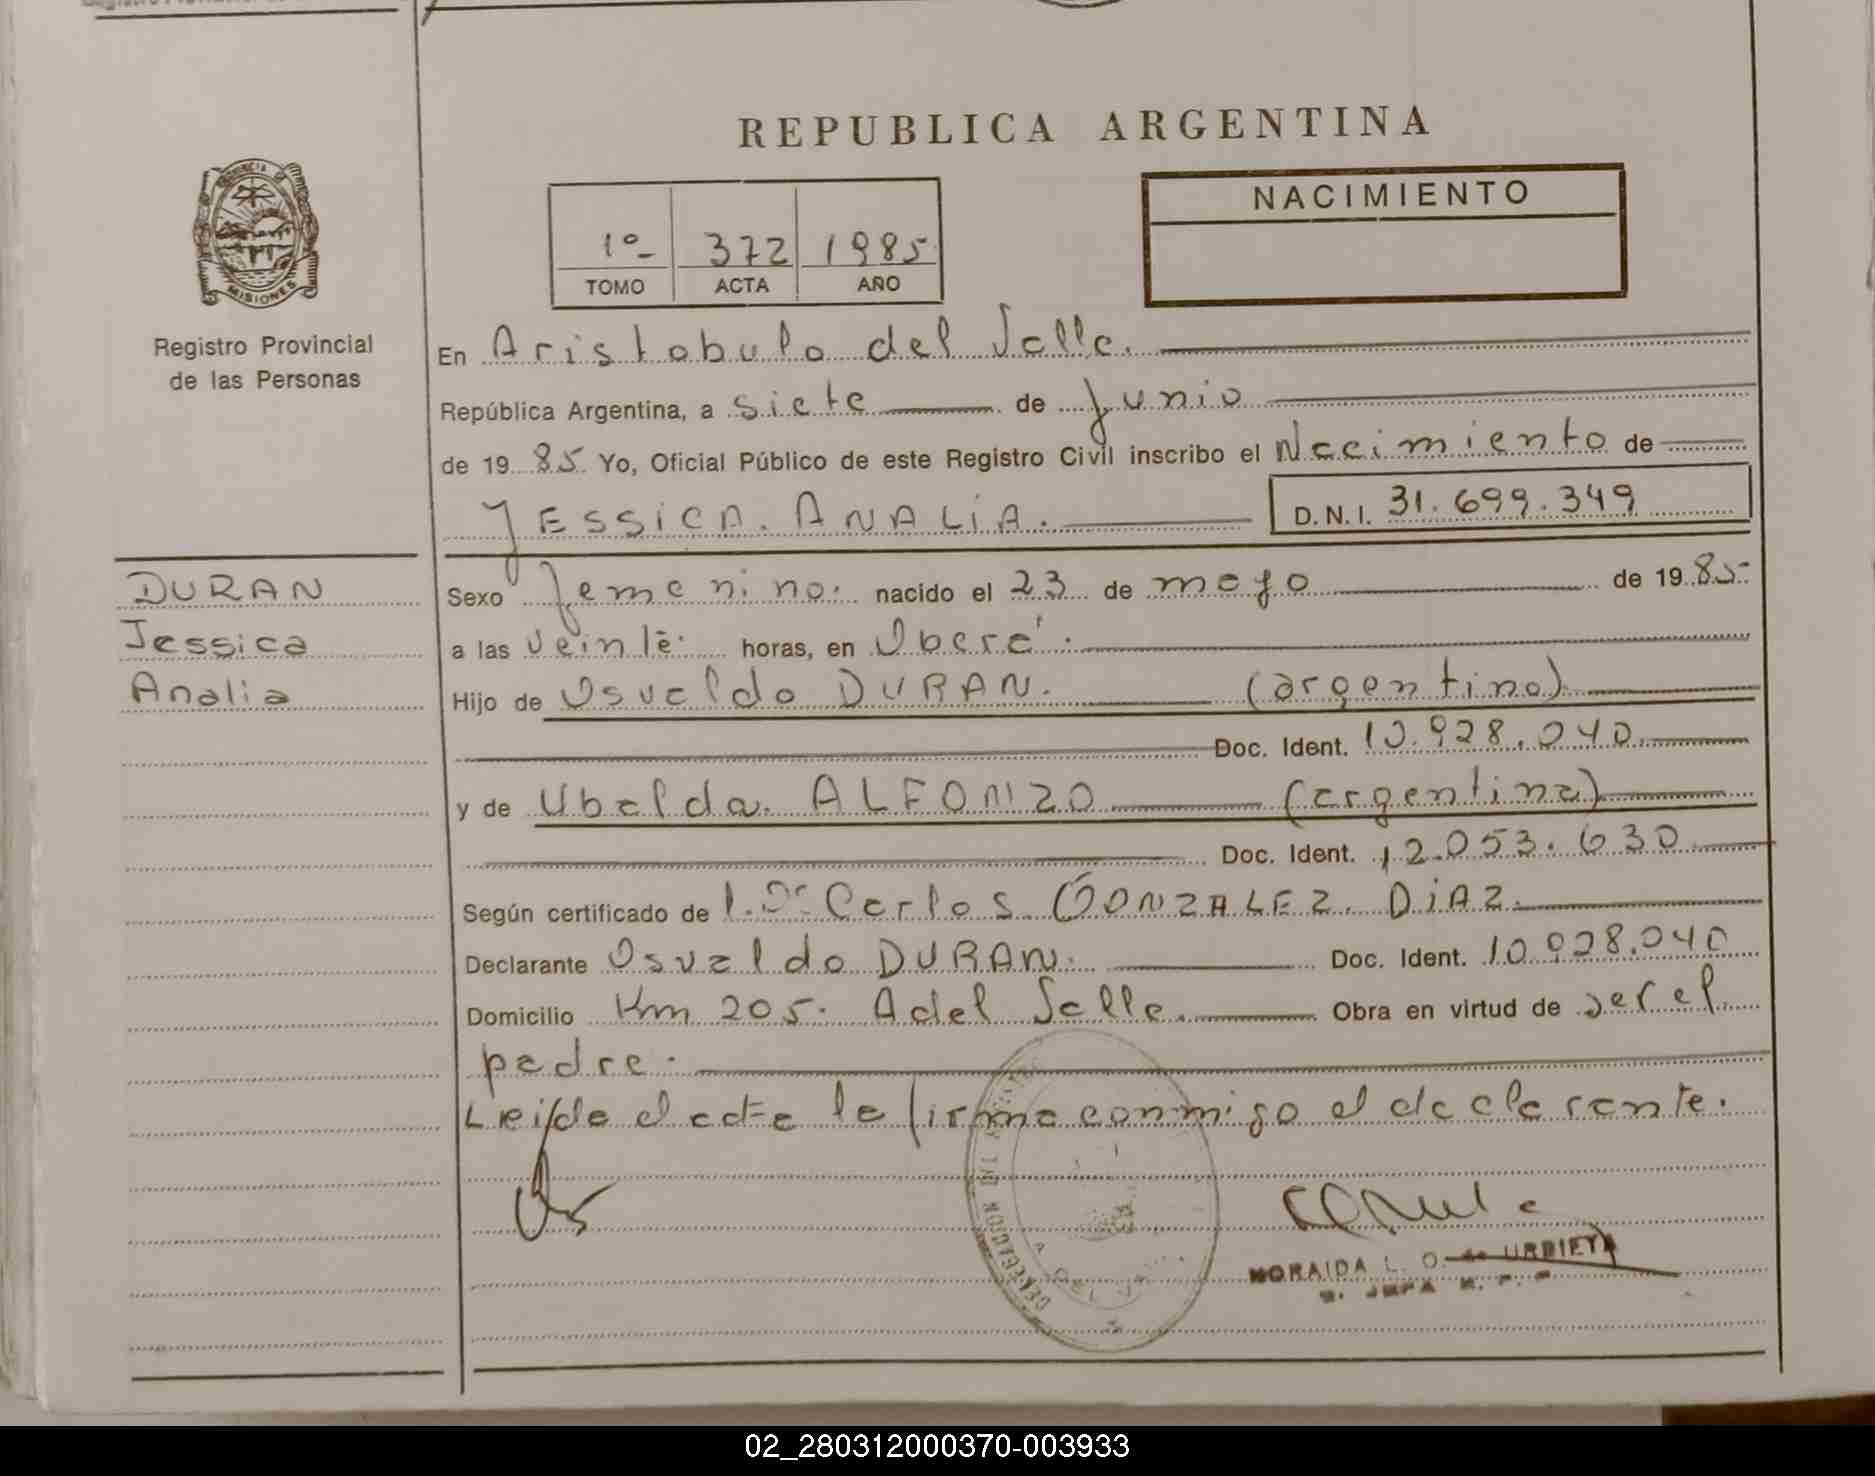 REPUBLICA ARGENTINA
PROVINCIA DE
MISIONES
Registro Provincial
de las Personas
1º 372 1985
TOMO ACTA AÑO
NACIMIENTO
En Aristobulo del Valle.
República Argentina, a siete de Junio
de 1985 Yo, Oficial Público de este Registro Civil inscribo el Nacimiento de
JESSICA. ANALIA.
D.N.I. 31.699.349
DURAN
Jessica
Analia
Sexo femenino. nacido el 23 de mayo de 1985
a las veinte horas, en Oberá.
Hijo de Osvaldo DURAN. (argentino)
Doc. Ident. 10.928.040
y de Ubalda. ALFONZO (argentina)
Doc. Ident. 12.053.630
Según certificado de l. Dr Carlos GONZALEZ. DiAZ.
Declarante Osvaldo DURAN. Doc. Ident. 10.928.040
Domicilio Km 205. A del Valle. Obra en virtud de ser el
padre.
Leida el acta la firma conmigo el declarante.
NORAIDA L. O. de URBIETA
02_280312000370-003933